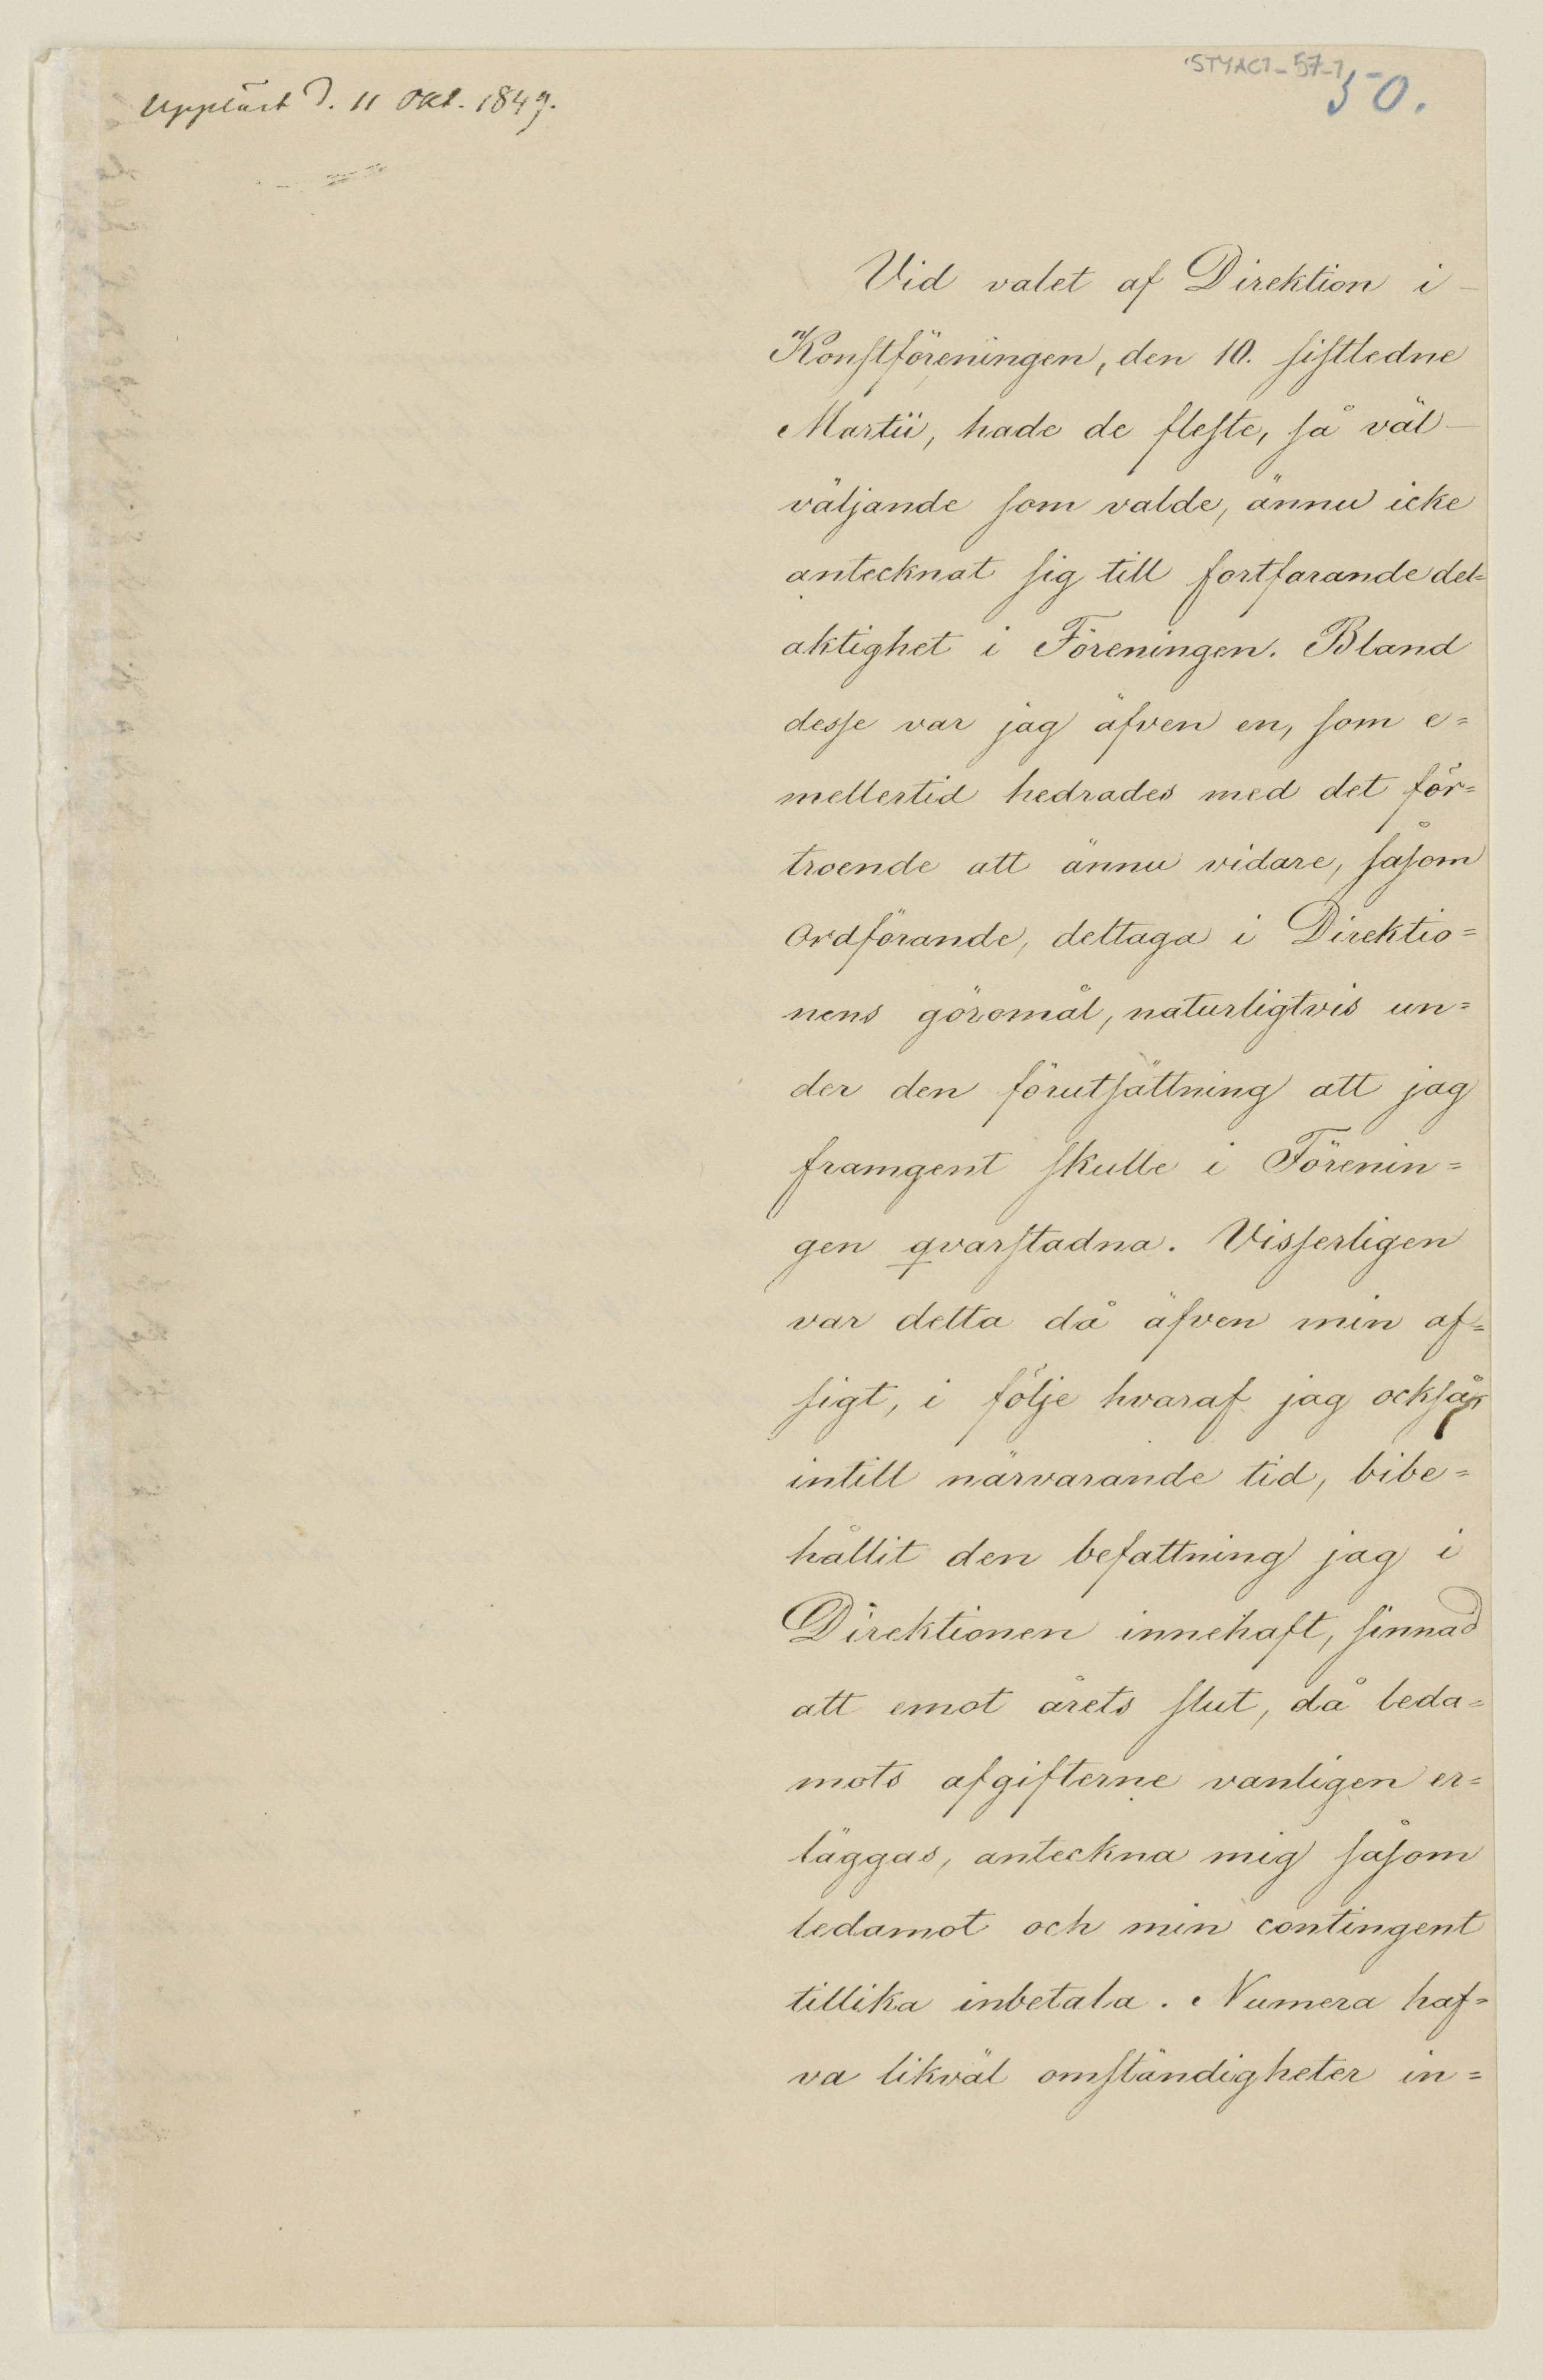 Uppläst d. 11 Okt. 1849.
STYAC1-57-1
50.
Vid valet af Direktion i
Konstföreningen, den 10. sistledne
Martii, hade de fleste, så väl
väljande som valde, ännu icke
antecknat sig till fortfarande del=
aktighet i Föreningen. Bland
desse var jag äfven en, som e=
mellertid hedrades med det för=
troende att ännu vidare, såsom
Ordförande, deltaga i Direktio=
nens göromål, naturligtvis un=
der den förutsättning att jag
framgent skulle i Förenin=
gen qvarstadna. Visserligen
var detta då äfven min af=
sigt, i följe hvaraf jag också,
intill närvarande tid, bibe=
hållit den befattning jag i
Direktionen innehaft, sinnad
att emot årets slut, då leda=
mots afgifterne vanligen er=
läggas, anteckna mig såsom
ledamot och min contingent
tillika inbetala. Numera haf=
va likväl omständigheter in=